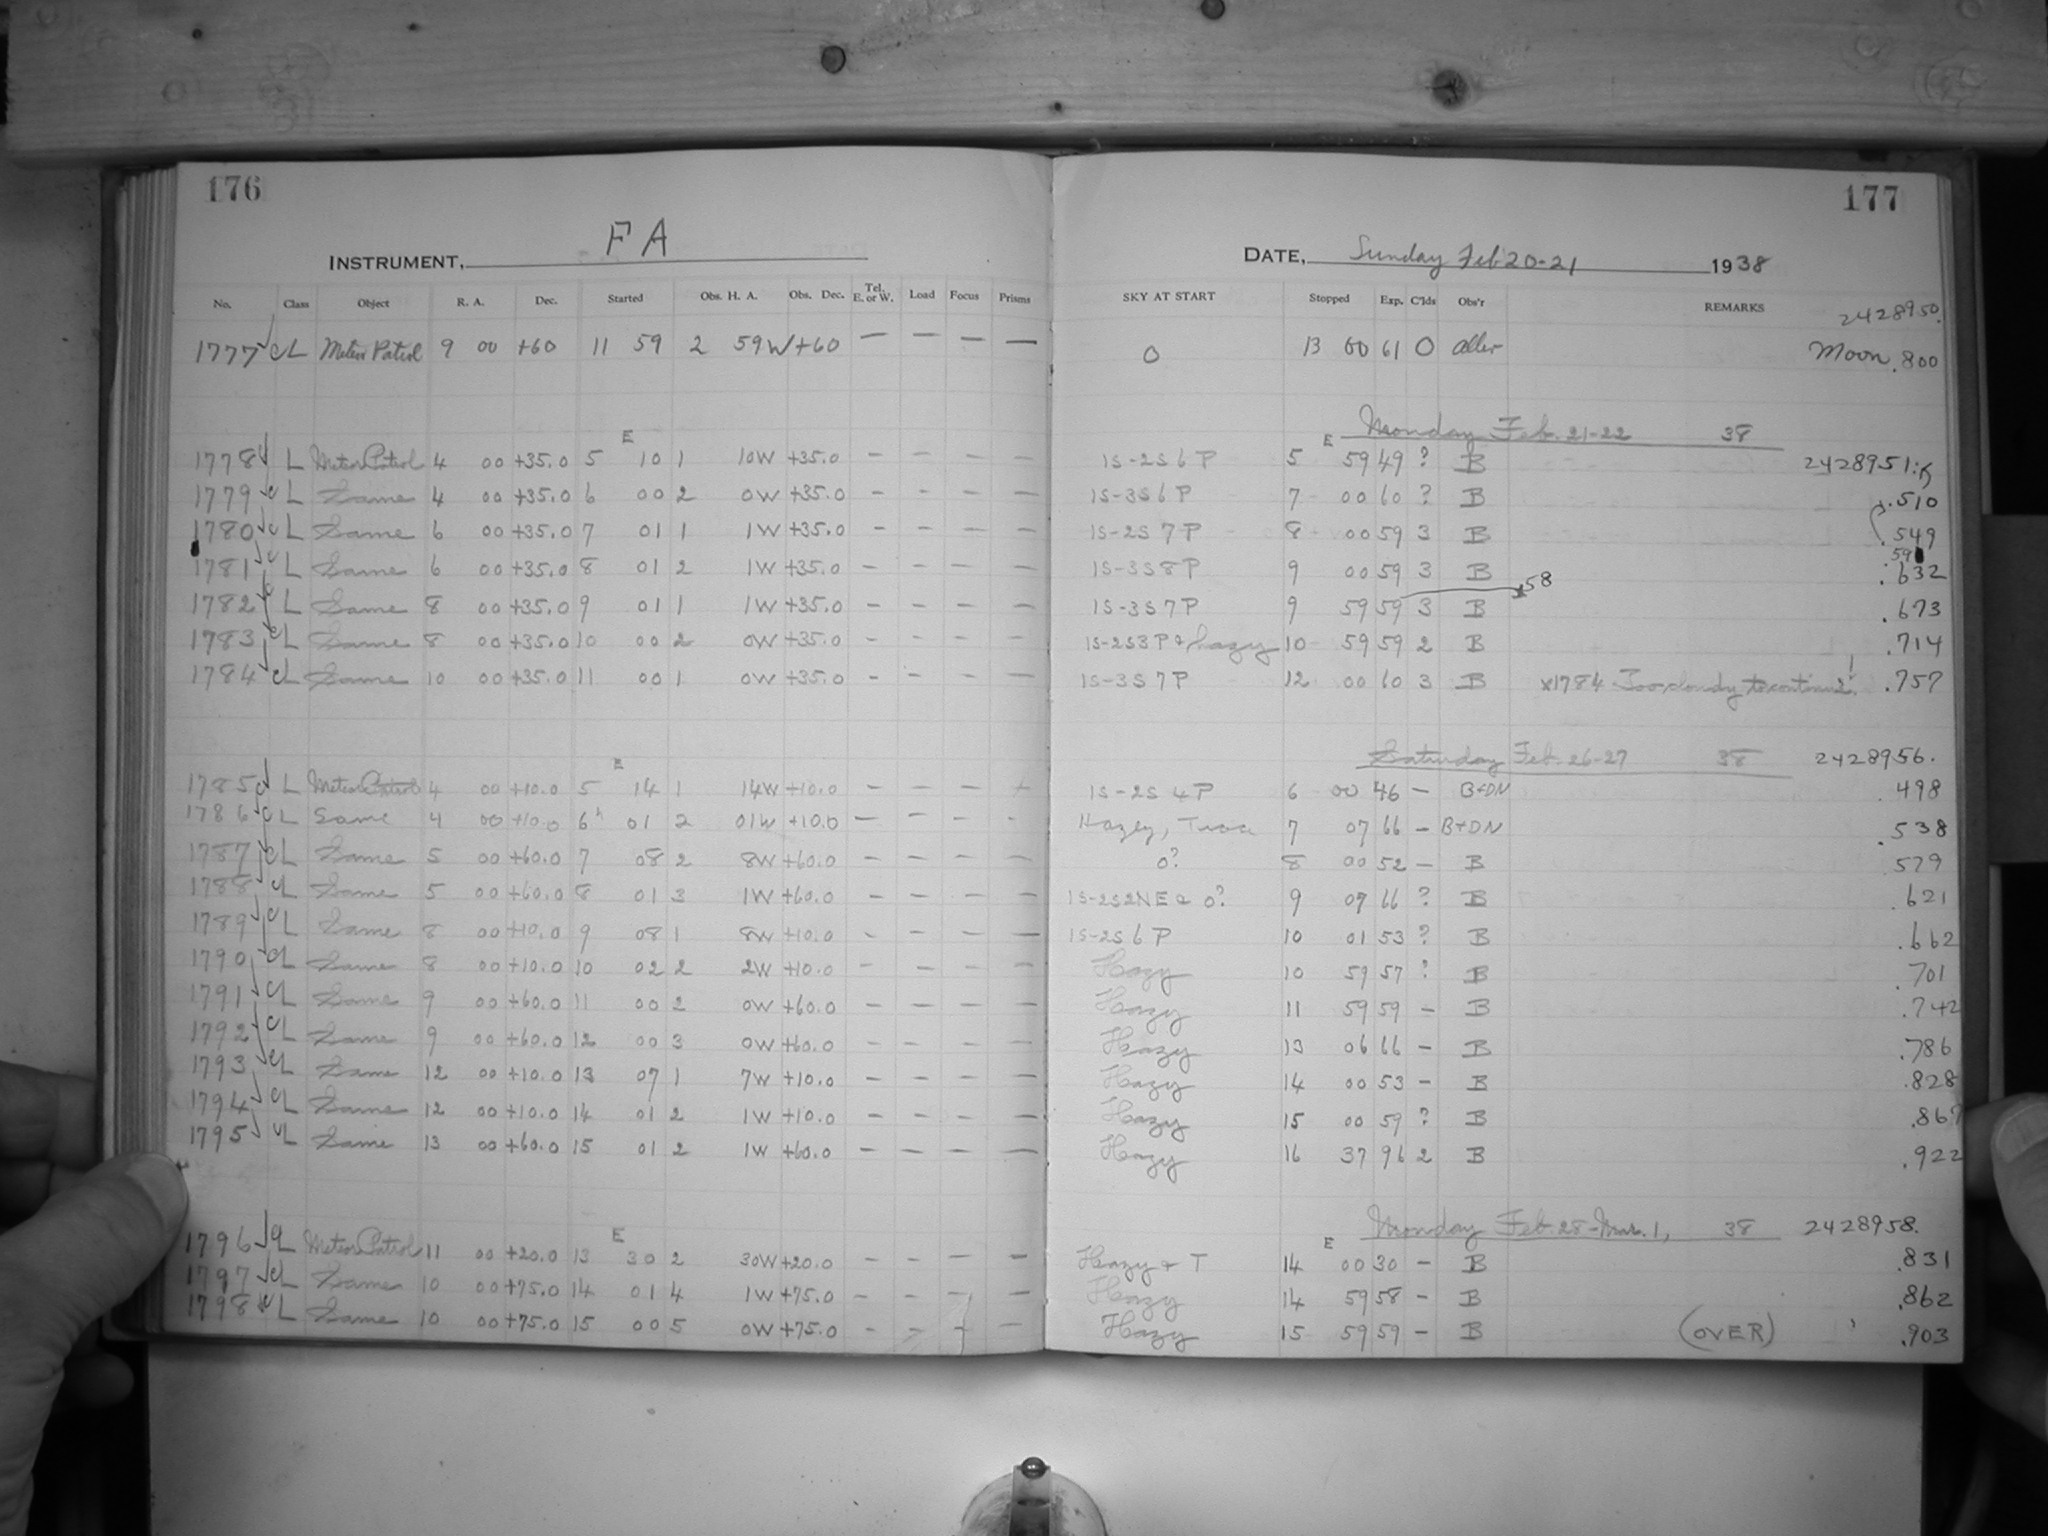 176
INSTRUMENT, FA
No. Class Object R. A. Dec. Started Obs. H. A. Obs. Dec. Tel. E. or W. Load Focus Prisms
1777 CL Meteor Patrol 9 00 +60 11 59 2 59W +60 — — — —
E
1778 L Meteor Patrol 4 00 +35.0 5 10 1 10W +35.0 — — — —
1779 CL Same 4 00 +35.0 6 00 2 0W +35.0 — — — —
1780 CL Same 6 00 +35.0 7 01 1 1W +35.0 — — — —
1781 CL Same 6 00 +35.0 8 01 2 1W +35.0 — — — —
1782 CL Same 8 00 +35.0 9 01 1 1W +35.0 — — — —
1783 CL Same 8 00 +35.0 10 00 2 0W +35.0 — — — —
1784 CL Same 10 00 +35.0 11 00 1 0W +35.0 — — — —
E
1785 CL Meteor Patrol 4 00 +10.0 5 14 1 14W +10.0 — — —
1786 CL Same 4 00 +10.0 6h 01 2 01W +10.0 — — — —
1787 CL Same 5 00 +60.0 7 08 2 8W +60.0 — — — —
1788 CL Same 5 00 +60.0 8 01 3 1W +60.0 — — — —
1789 CL Same 8 00 +10.0 9 08 1 8W +10.0 — — — —
1790 CL Same 8 00 +10.0 10 02 2 2W +10.0 — — — —
1791 CL Same 9 00 +60.0 11 00 2 0W +60.0 — — — —
1792 CL Same 9 00 +60.0 12 00 3 0W +60.0 — — — —
1793 CL Same 12 00 +10.0 13 07 1 7W +10.0 — — — —
1794 CL Same 12 00 +10.0 14 01 2 1W +10.0 — — — —
1795 CL Same 13 00 +60.0 15 01 2 1W +60.0 — — — —
E
1796 CL Meteor Patrol 11 00 +20.0 13 30 2 30W +20.0 — — — —
1797 CL Same 10 00 +75.0 14 01 4 1W +75.0 — — — —
1798 CL Same 10 00 +75.0 15 00 5 0W +75.0 — — — —
177
DATE, Sunday Feb 20-21 1938
SKY AT START Stopped Exp. C'lds Obs'r REMARKS
2428950.
0 13 00 61 0 Oller Moon .800
E Monday Feb. 21-22 38
1S-2S 6 P 5 59 49 ? B 2428951.
1S-3S 6 P 7 00 60 ? B .510
1S-2S 7 P 8 00 59 3 B .549
.591
1S-3S 8 P 9 00 59 3 B .632
58
1S-3S 7 P 9 59 59 3 B .673
1S-2S 3 P & hazy 10 59 59 2 B .714
1S-3S 7 P 12 00 60 3 B x1784 Too cloudy to continue! .757
Saturday Feb. 26-27 38 2428956.
1S-2S 4 P 6 00 46 — B+DN .498
Hazy, 7 07 66 — B+DN .538
0? 8 00 52 — B .579
1S-2S 2NE & 0? 9 07 66 ? B .621
1S-2S 6 P 10 01 53 ? B .662
Hazy 10 59 57 ? B .701
Hazy 11 59 59 — B .742
Hazy 13 06 66 — B .786
Hazy 14 00 53 — B .828
Hazy 15 00 59 ? B .867
Hazy 16 37 96 2 B .922
E Monday Feb. 28-Mar. 1, 38 2428958.
Hazy & T 14 00 30 — B .831
Hazy 14 59 58 — B .862
Hazy 15 59 59 — B (OVER) .903